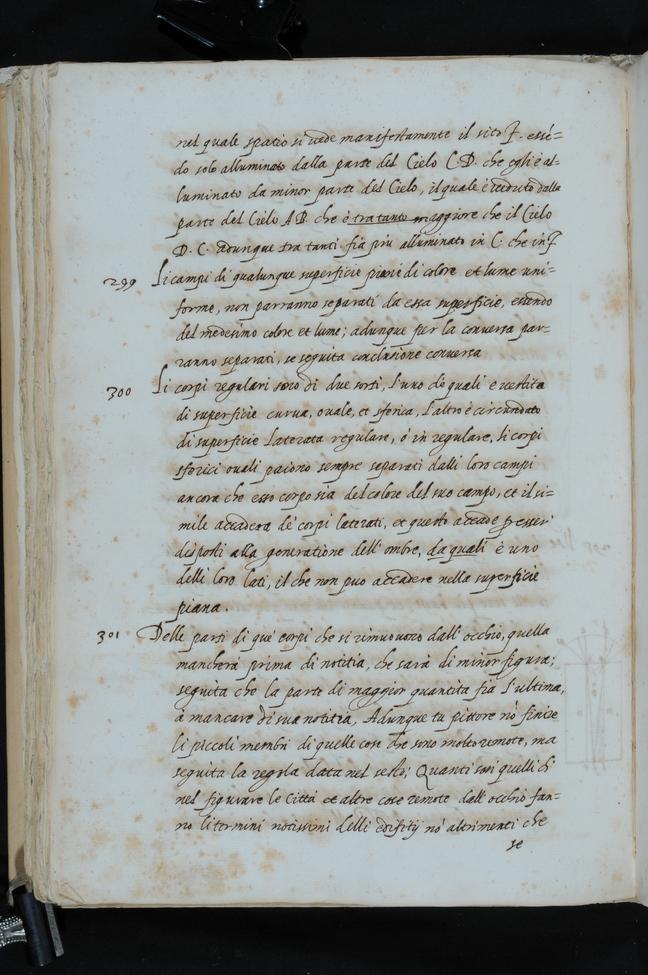 nel quale spatio si vede manifestamente il sito F. essē=
do solo alluminato dalla parte del Cielo C.D. che egli è al=
luminato da minor parte del Cielo, il quale è veduto dalla
parte del Cielo A B. che è tra tanto maggiore che il Cielo
D. C. adunque fra tanti fia più alluminato in C. che in F
299 Li campi di qualunque superficie di colore et lume uni=
forme, non parranno separati da essa superficie, essendo
del medesimo colore et lume; adunque per la conversa par=
ranno separati, se seguita conclusione conversa
300 Li corpi regulari sono di due sorti, l'uno de quali è vestito
di superficie curva, ovale, et sferica, l'altro è circundato
di superficie laterata regulare, ò in regulare, li corpi
sferici ovali paiono sempre separati dalli loro campi
ancora che esso corpo sia del colore del suo campo, et il si=
mile accaderà de corpi laterati, et questo accade p esser
disposti alla generatione dell' ombre, da quali è uno
delli loro lati, il che non puo accadere nella superficie
piana.
301 Delle parti di que corpi che si rimuovono dall' occhio, quella
mancherà prima di notitia, che sarà di minor figura;
seguita che la parte di maggior quantità fia l'ultima,
à mancare di sua notitia, Adunque tu pittore nō finire
li piccoli membri di quelle cose che sono molto remote, ma
seguita la regola data nel sesto; Quanti son quelli ch
nel figurare le Città et altre cose remote dall' occhio fan=
no li termini notissimi delli edifitij nō altrimenti che
se